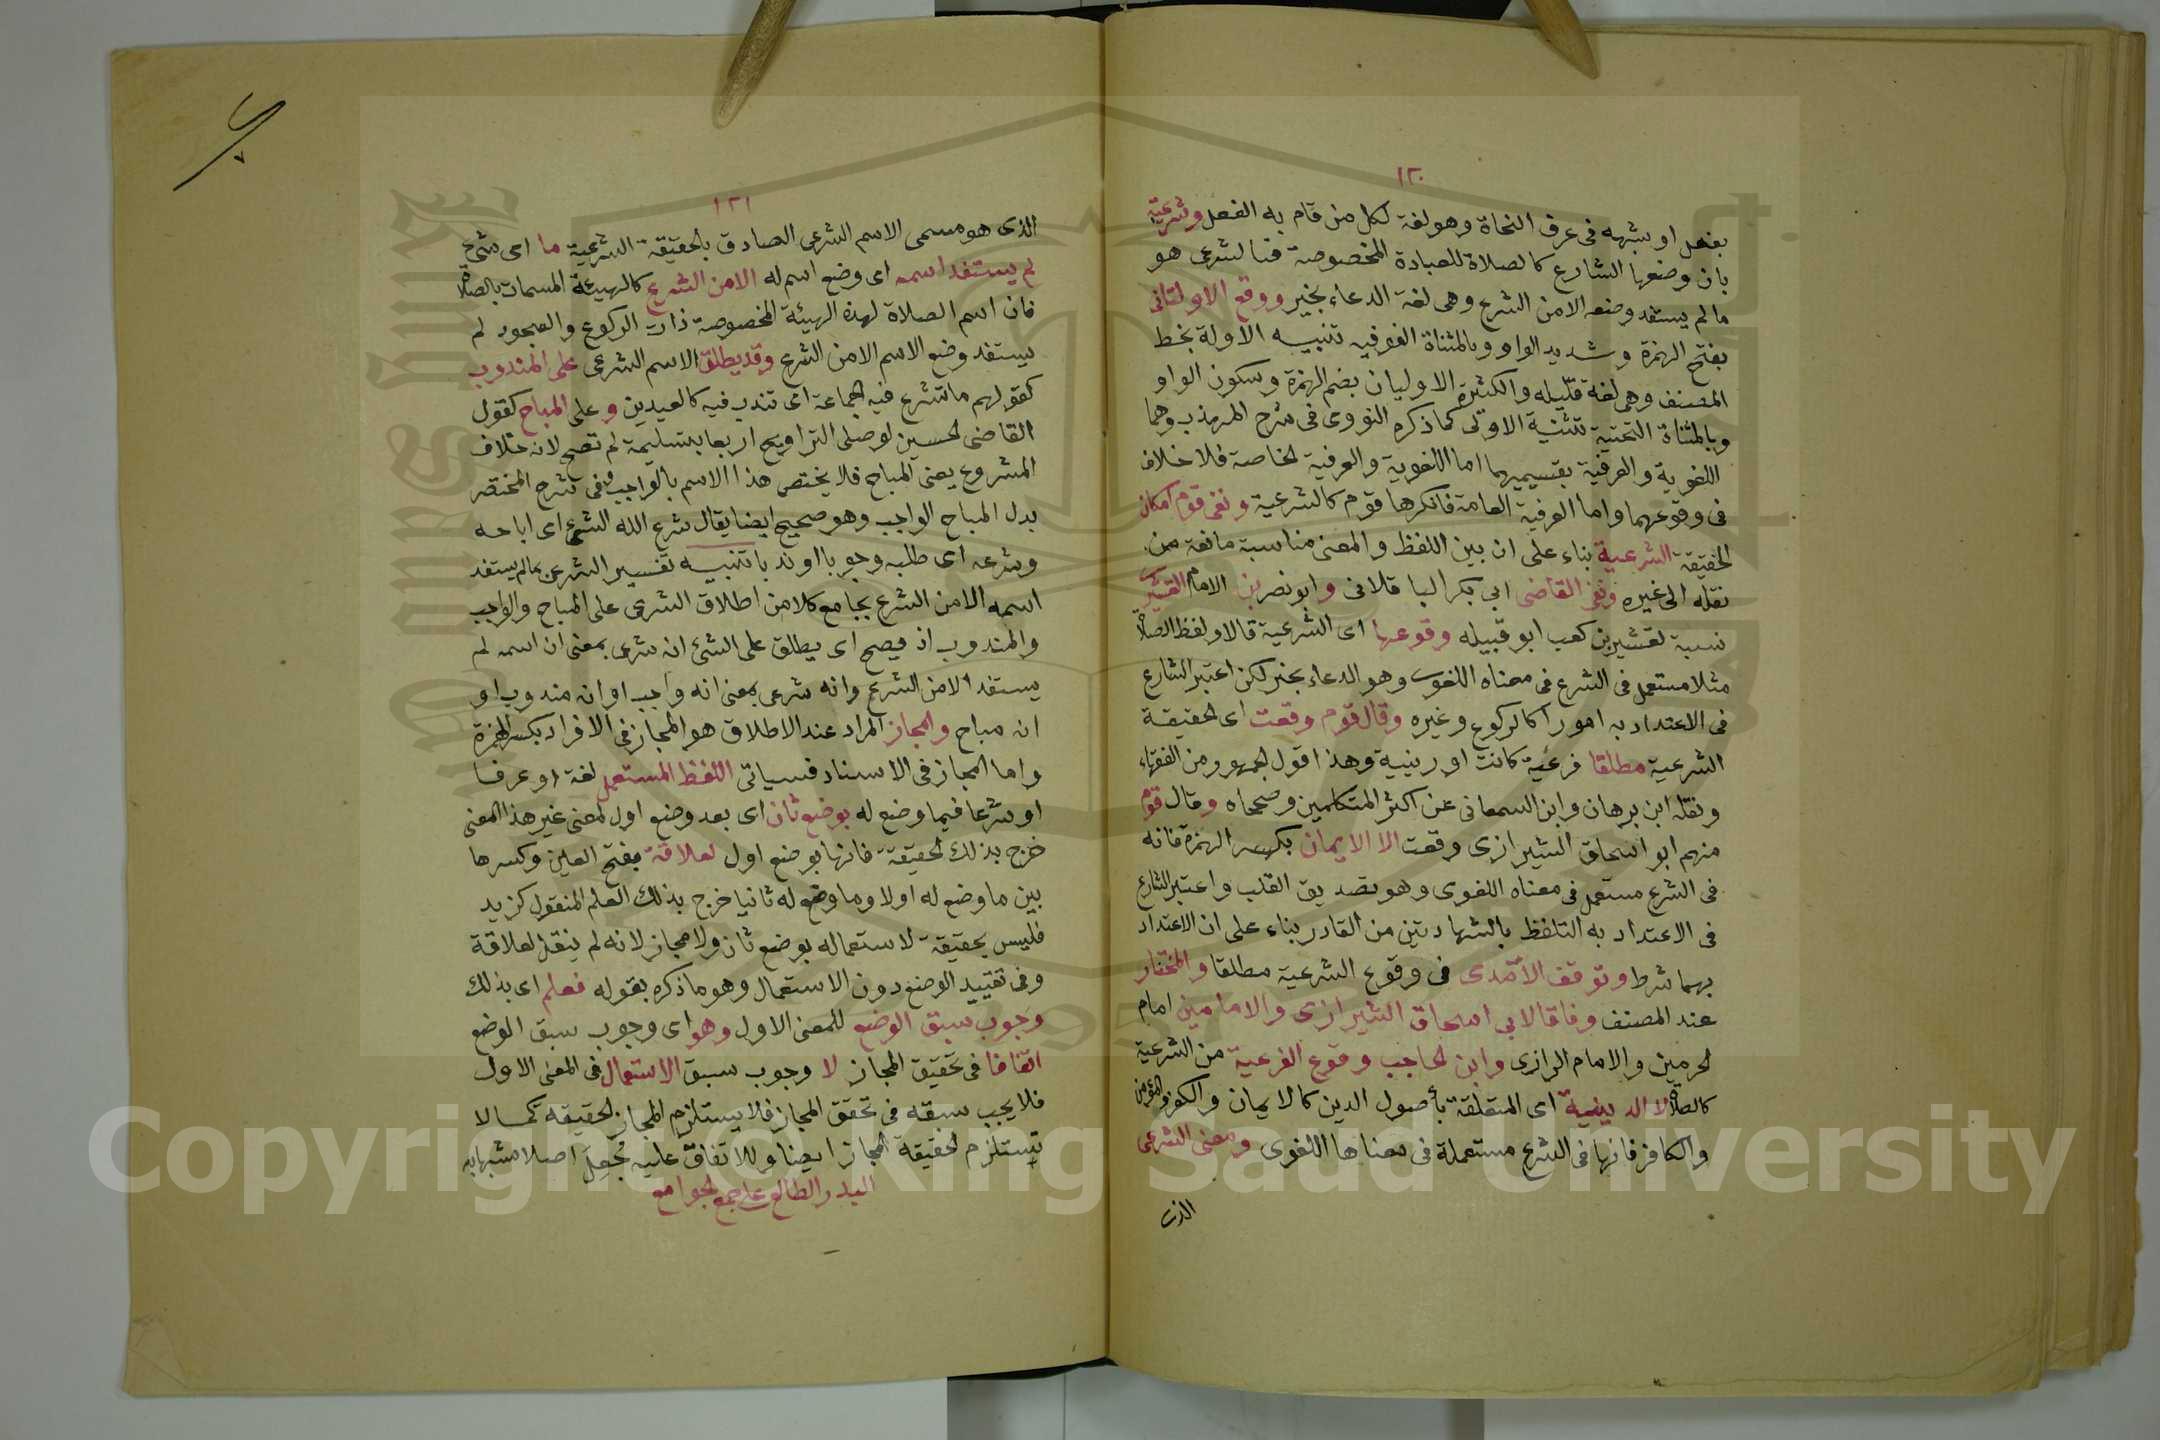 ١٢٠
بفعل او شبهه فى عرف النحاة وهو لغة لكل من قام به الفعل وشرعية
بان وضعها الشارع كالصلاة للعبادة المخصوصة فالشرعى هو
ما لم يستفد وضعه الا من الشرع وهى لغة الدعاء بخير ووقع الاولتانى
بفتح الهمزة وشديد الواو وبالمثناة الفوقيه تنبيه الاولة بخط
المصنف وهى لغة قليله والكثيرة الاوليان بضم الهمزة وسكون الواو
وبالمثناة التحتية تثنية الاولى كما ذكره النووى فى شرح المهذب وهما
اللغوية والعرفية بقسيميهما اما اللغوية والعرفية الخاصة فلا خلاف
فى وقوعهما واما العرفية العامة فانكرها قوم كالشرعية ونفى قوم امكان
الحقيقة الشرعية بناء على ان بين اللفظ والمعنى مناسبة مانعة من
نقله الى غيره ونفى القاضى ابى بكر الباقلانى وابو نصر بن الامام القشيرى
نسبة لقشير بن كعب ابو قبيله وقوعها اى الشرعية قالا ولفظ الصلاة
مثلا مستعمل فى الشرع فى معناه اللغوى وهو الدعاء بخير لكن اعتبر الشارع
فى الاعتداد به امورا كالركوع وغيره وقال قوم وقعت اى الحقيقة
الشرعية مطلقا فرعية كانت او دينية وهذا قول الجمهور من الفقهاء
ونقله ابن برهان وابن السمعانى عن اكثر المتكلمين وصححاه وقال قوم
منهم ابو اسحاق الشيرازى وقعت الا الايمان بكسر الهمزة فانه
فى الشرع مستعمل فى معناه اللغوى وهو تصديق القلب واعتبر الشارع
فى الاعتداد به التلفظ بالشهادتين من القادر بناء على ان الاعتداد
بهما شرط وتوقف الآمدى فى وقوع الشرعية مطلقا والمختار
عند المصنف وفاقا لابى اسحاق الشيرازى والامامين امام
الحرمين والامام الرازى وابن الحاجب وقوع الفرعية من الشرعية
كالصلاة لا الدينية اى المتعلقة بأصول الدين كالايمان والكفر والمؤمن
والكافر فانها فى الشرع مستعملة فى معناها اللغوى ومعنى الشرعى
الذى
١٢١
الذى هو مسمى الاسم الشرعى الصادق بالحقيقة الشرعية ما اى شئ
لم يستفد اسمه اى وضع اسم له الا من الشرع كالهيئة المسمات بالصلاة
فان اسم الصلاة لهذه الهيئة المخصوصة ذات الركوع والسجود لم
يستفد وضع الاسم الا من الشرع وقد يطلق الاسم الشرعى على المندوب
كقولهم ما تشرع فيه الجماعة اى تندب فيه كالعيدين و على المباح كقول
القاضى الحسين لو صلى التراويح اربعا بتسليمة لم تصح لانه خلاف
المشروع يعنى المباح فلا يختص هذا الاسم بالواجب وفى شرح المختصر
بدل المباح الواجب وهو صحيح ايضا يقال شرع الله الشئ اى اباحه
وشرعه اى طلبه وجوبا او ندبا تنبيه تفسير الشرعى بما لم يستفد
اسمه الا من الشرع يجامع كلا من اطلاق الشرعى على المباح والواجب
والمندوب اذ يصح اى يطلق على الشئ انه شرعى بمعنى ان اسمه لم
يستفد الا من الشرع وانه شرعى بمعنى انه واجب او انه مندوب او
انه مباح والمجاز المراد عند الاطلاق هو المجاز فى الافراد بكسر الهمزة
واما المجاز فى الاسناد فسياتى اللفظ المستعمل لغة او عرفا
او شرعا فيما وضع له بوضع ثان اى بعد وضع اول لمعنى غير هذا المعنى
خرج بذلك الحقيقة فانها بوضع اول لعلاقة بفتح العين وكسرها
بين ما وضع له اولا وما وضع له ثانيا خرج بذلك العلم المنقول كزيد
فليس بحقيقة لاستعماله بوضع ثان ولا مجاز لانه لم ينقل لعلاقة
وفى تقييد الوضع دون الاستعمال وهو ما ذكره بقوله فعلم اى بذلك
وجوب سبق الوضع للمعنى الاول وهو اى وجوب سبق الوضع
اتفاقا فى تحقيق المجاز لا وجوب سبق الاستعمال فى المعنى الاول
فلا يجب سبقه فى تحقق المجاز فلا يستلزم المجاز الحقيقه كما لا
تستلزم الحقيقة المجاز ايضا وللاتفاق عليه جُعِلَ اصلا مشبها به
البدر الطالع على جمع الجوامع
Copyright © King Saud University
King Saud University
1957